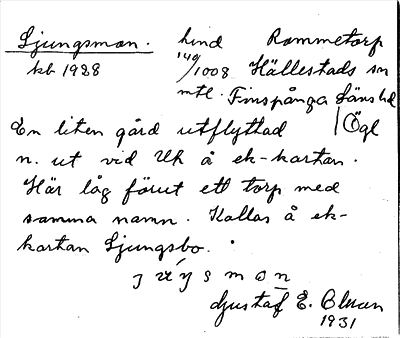 Ljungsmon. hmd Rommetorp
kb 1928 140/1008 Hällestads sn
mtl. Finspånga länshd
En liten gård utflyttad Ögl
n. ut vid Uh å ek-kartan.
Här låg förut ett torp med
samma namn. Kallas å ek-
kartan Ljungsbo.
Gustaf E. Oman
1931